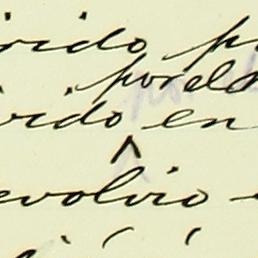 rido p
por el
rido en
evolvio